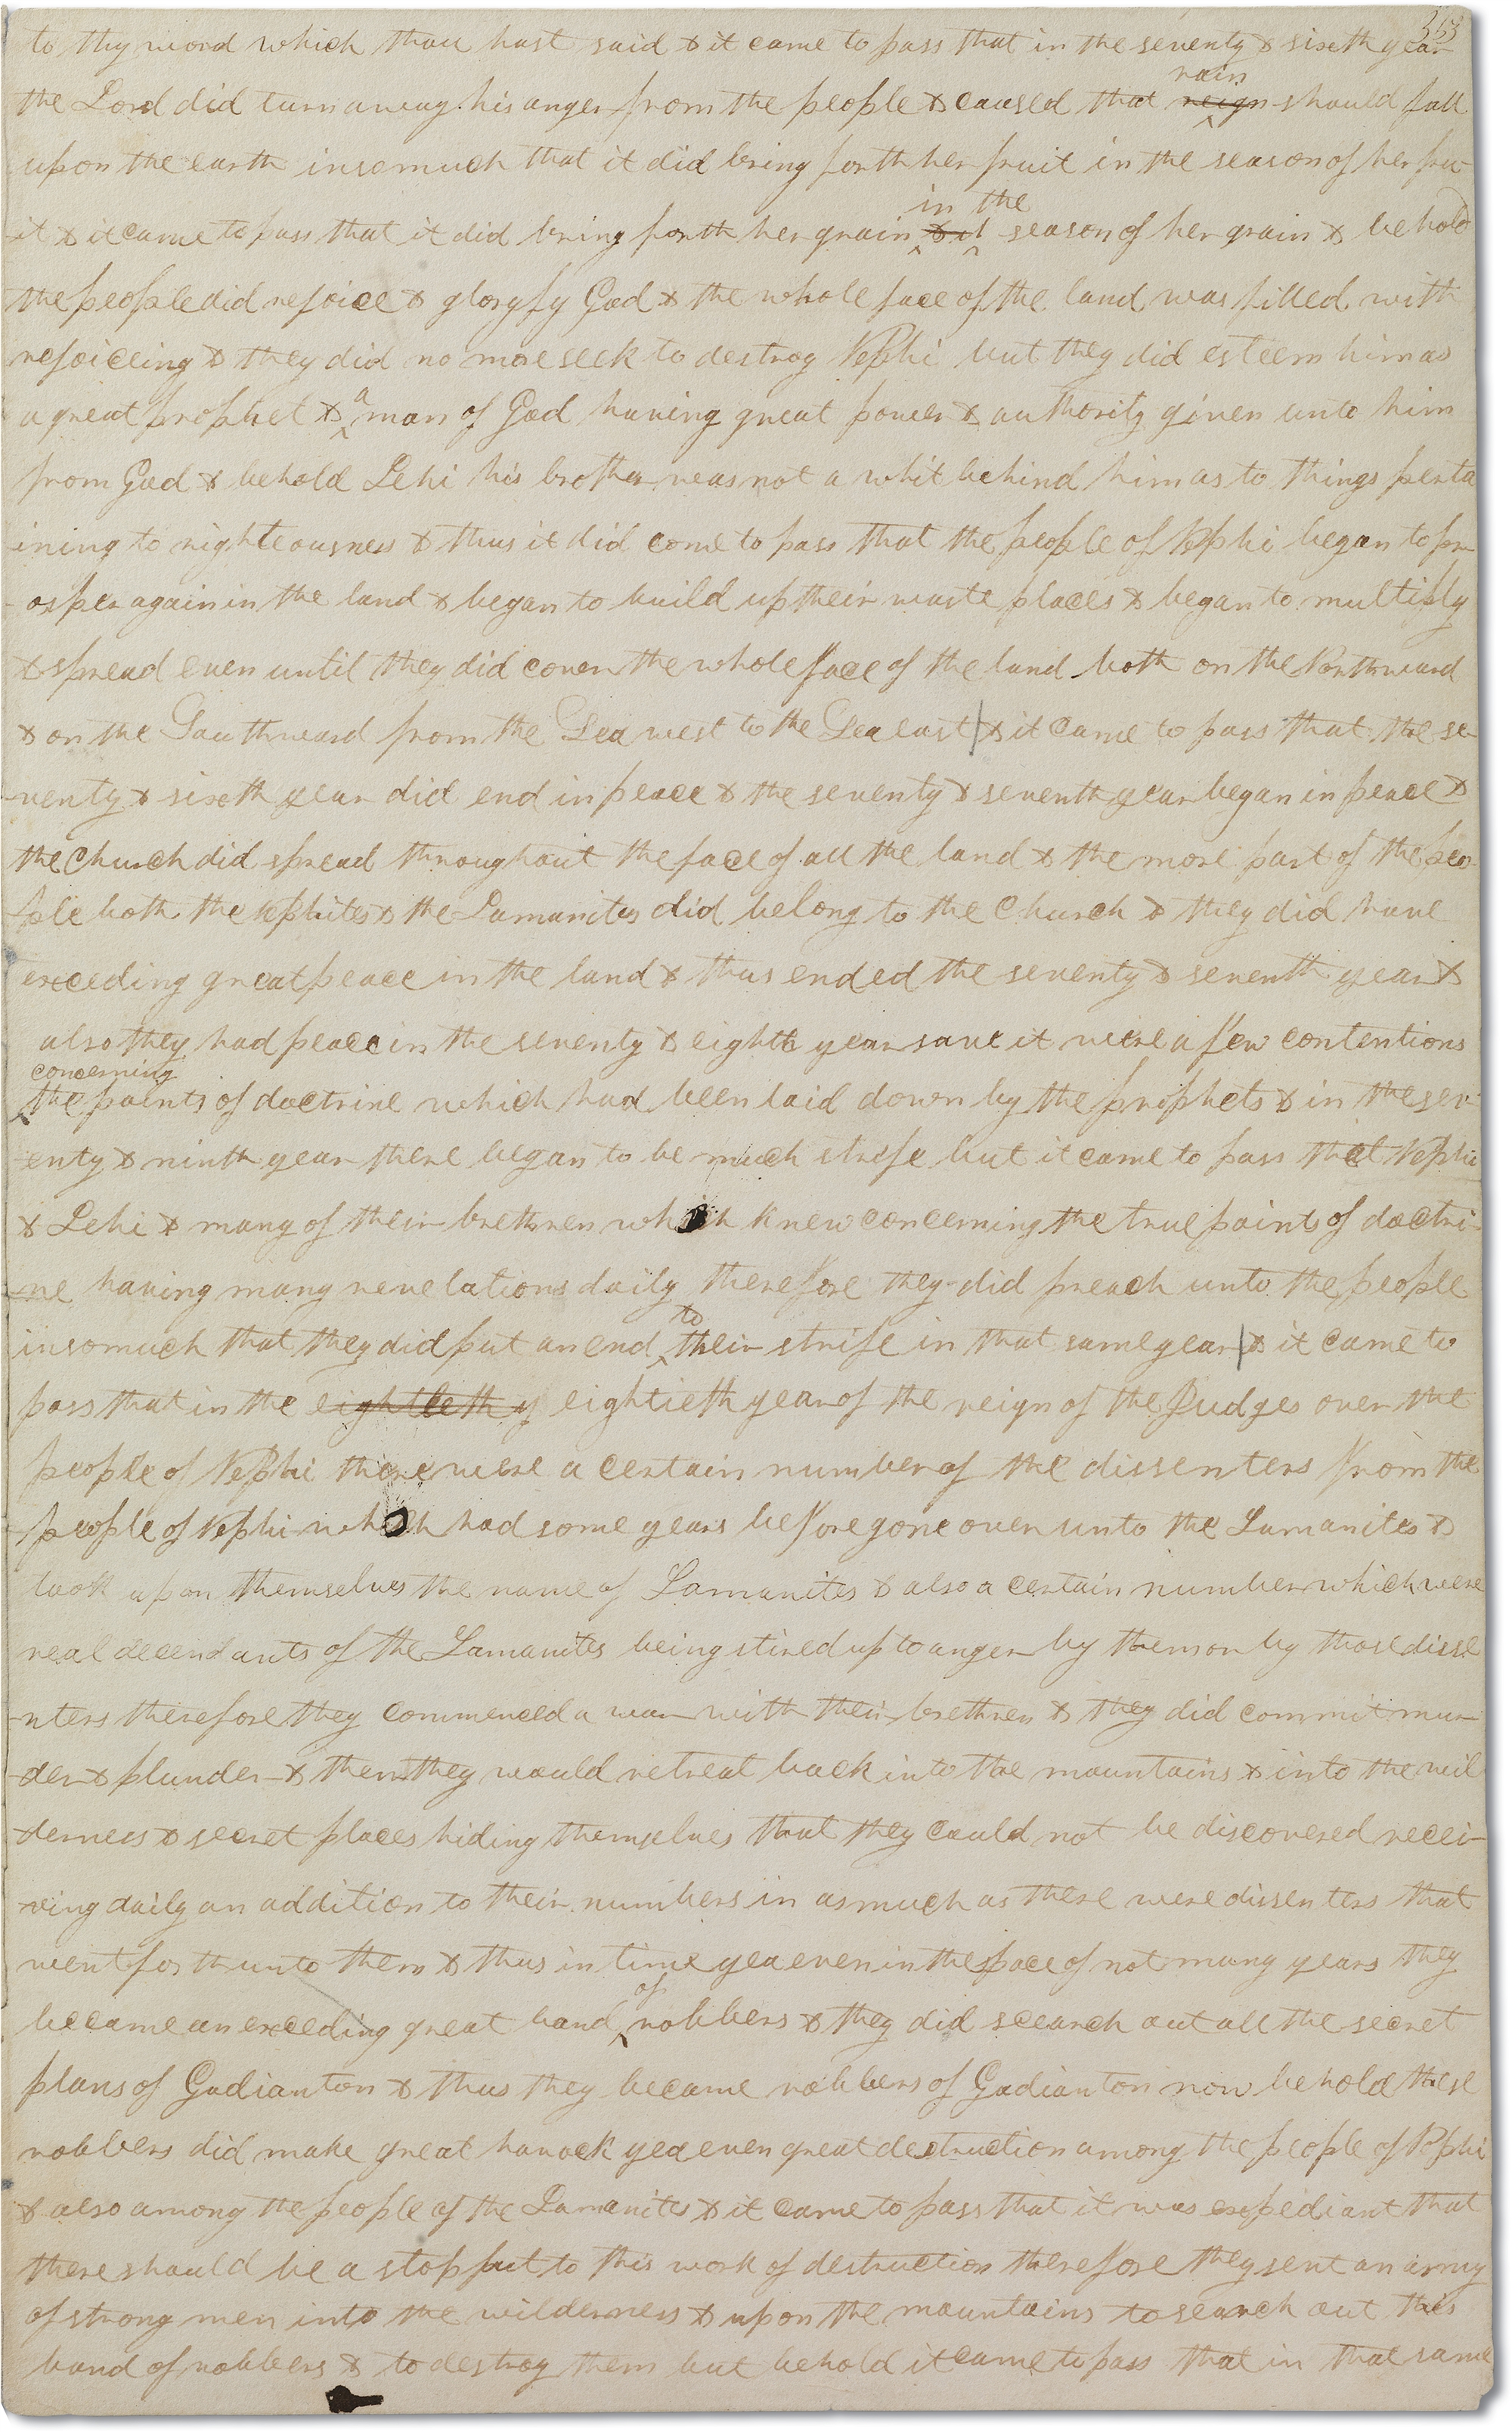 353
to thy word which thou hast said & it came to pass that in the seventy & sixth year
rain
the Lord did turn away his anger from the people & caused that reign should fall
upon the earth insomuch that it did bring forth her fruit in the season of her fru-
in the
-it & it came to pass that it did bring forth her grain & it season of her grain & behold
the people did rejoice & gloryfy God & the whole face of the land was filled with
rejoiceing & they did no more seek to destroy Nephi but they did esteem him as
a
a great prophet & man of God having great power & authority given unto him
from God & behold Lehi his brother was not a whit behind him as to things perta
ining to righteousness & thus it did come to pass that the people of Nephi began to pr-
-osper again in the land & began to build up their waste places & began to multiply
& spread even until they did cover the whole face of the land both on the Northward
& on the Southward from the Sea west to the Sea east & it came to pass that the se-
-venty & sixth year did end in peace & the seventy & seventh year began in peace &
the Church did spread throughout the face of all the land & the more part of the peo-
-ple both the Nephites & the Lamanites did belong to the Church & they did have
exceeding great peace in the land & thus ended the seventy & seventh year &
also they had peace in the seventy & eighth year save it were a few contentions
concerning
the points of doctrine which had been laid down by the prophets & in the sev-
-enty & ninth year there began to be much strife but it came to pass that Nephi
& Lehi & many of their brethren which knew concerning the true points of doctri-
-ne having many revelations daily therefore they did preach unto the people
to
insomuch that they did put an end their strife in that same year & it came to
pass that in the eightieth y eightieth year of the reign of the Judges over the
people of Nephi there were a certain number of the dissenters from the
people of Nephi which had some years before gone over unto the Lamanites &
took upon themselves the name of Lamanites & also a certain number which were
real decendants of the Lamanites being stired up to anger by them or by those disse
-nters therefore they commenced a war with their brethren & they did commit mur
-der & plunder & then they would retreat back into the mountains & into the wil
derness & secret places hiding themselves that they could not be discovered recei-
-ving daily an addition to their numbers in as much as there were dissenters that
went forth unto them & thus in time yea even in the space of not many years they
of
became an exceeding great band robbers & they did search out all the secret
plans of Gadianton & thus they became robbers of Gadianton now behold these
robbers did make great havock yea even great destruction among the people of Nephi
& also among the people of the Lamanites & it came to pass that it was expediant that
there should be a stop put to this work of destruction therefore they sent an army
of strong men into the wilderness & upon the mountains to search out this
band of robbers & to destroy them but behold it came to pass that in that same